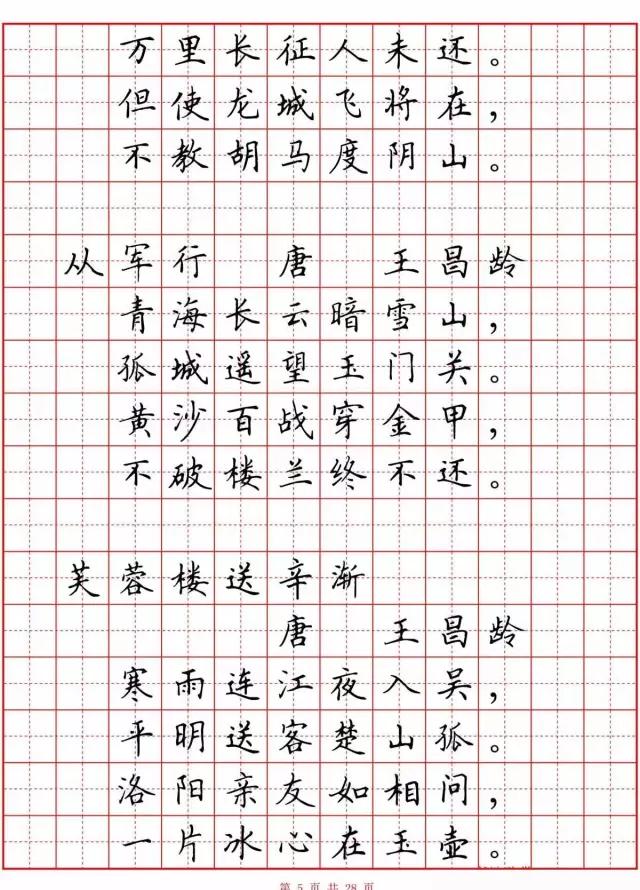 万里长征人未还。
但使龙城飞将在，
不教胡马度阴山。
从军行 唐 王昌龄
青海长云暗雪山，
孤城遥望玉门关。
黄沙百战穿金甲，
不破楼兰终不还。
芙蓉楼送辛渐
唐 王昌龄
寒雨连江夜入吴，
平明送客楚山孤。
洛阳亲友如相问，
一片冰心在玉壶。
第 5 页 共 28 页